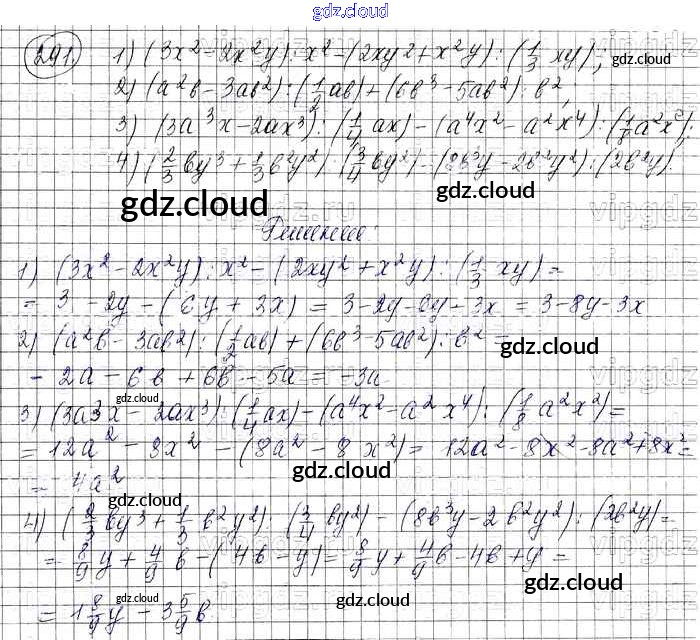 gdz.cloud
291. 1) (3x² - 2x²y) : x² - (2xy² + x²y) : (1/3 xy);
2) (a²b - 3ab²) : (1/2 ab) + (6b³ - 5ab²) : b²,
3) (3a³x - 2ax³) : (1/4 ax) - (a⁴x² - a²x⁴) : (1/8 a²x²);
4) (2/3 by³ + 1/3 b²y²) : (3/4 by²) - (8b³y - 2b²y²) : (2b²y).
gdz.cloud
Решение:
1) (3x² - 2x²y) : x² - (2xy² + x²y) : (1/3 xy) =
= 3 - 2y - (6y + 3x) = 3 - 2y - 6y - 3x = 3 - 8y - 3x
2) (a²b - 3ab²) : (1/2 ab) + (6b³ - 5ab²) : b² =
- 2a - 6b + 6b - 5a = -3a
3) (3a³x - 2ax³) : (1/4 ax) - (a⁴x² - a²x⁴) : (1/8 a²x²) =
= 12a² - 8x² - (8a² - 8x²) = 12a² - 8x² - 8a² + 8x² =
= 4a²
4) (2/3 by³ + 1/3 b²y²) : (3/4 by²) - (8b³y - 2b²y²) : (2b²y) =
= 8/9 y + 4/9 b - (4b - y) = 8/9 y + 4/9 b - 4b + y =
= 1 8/9 y - 3 5/9 b